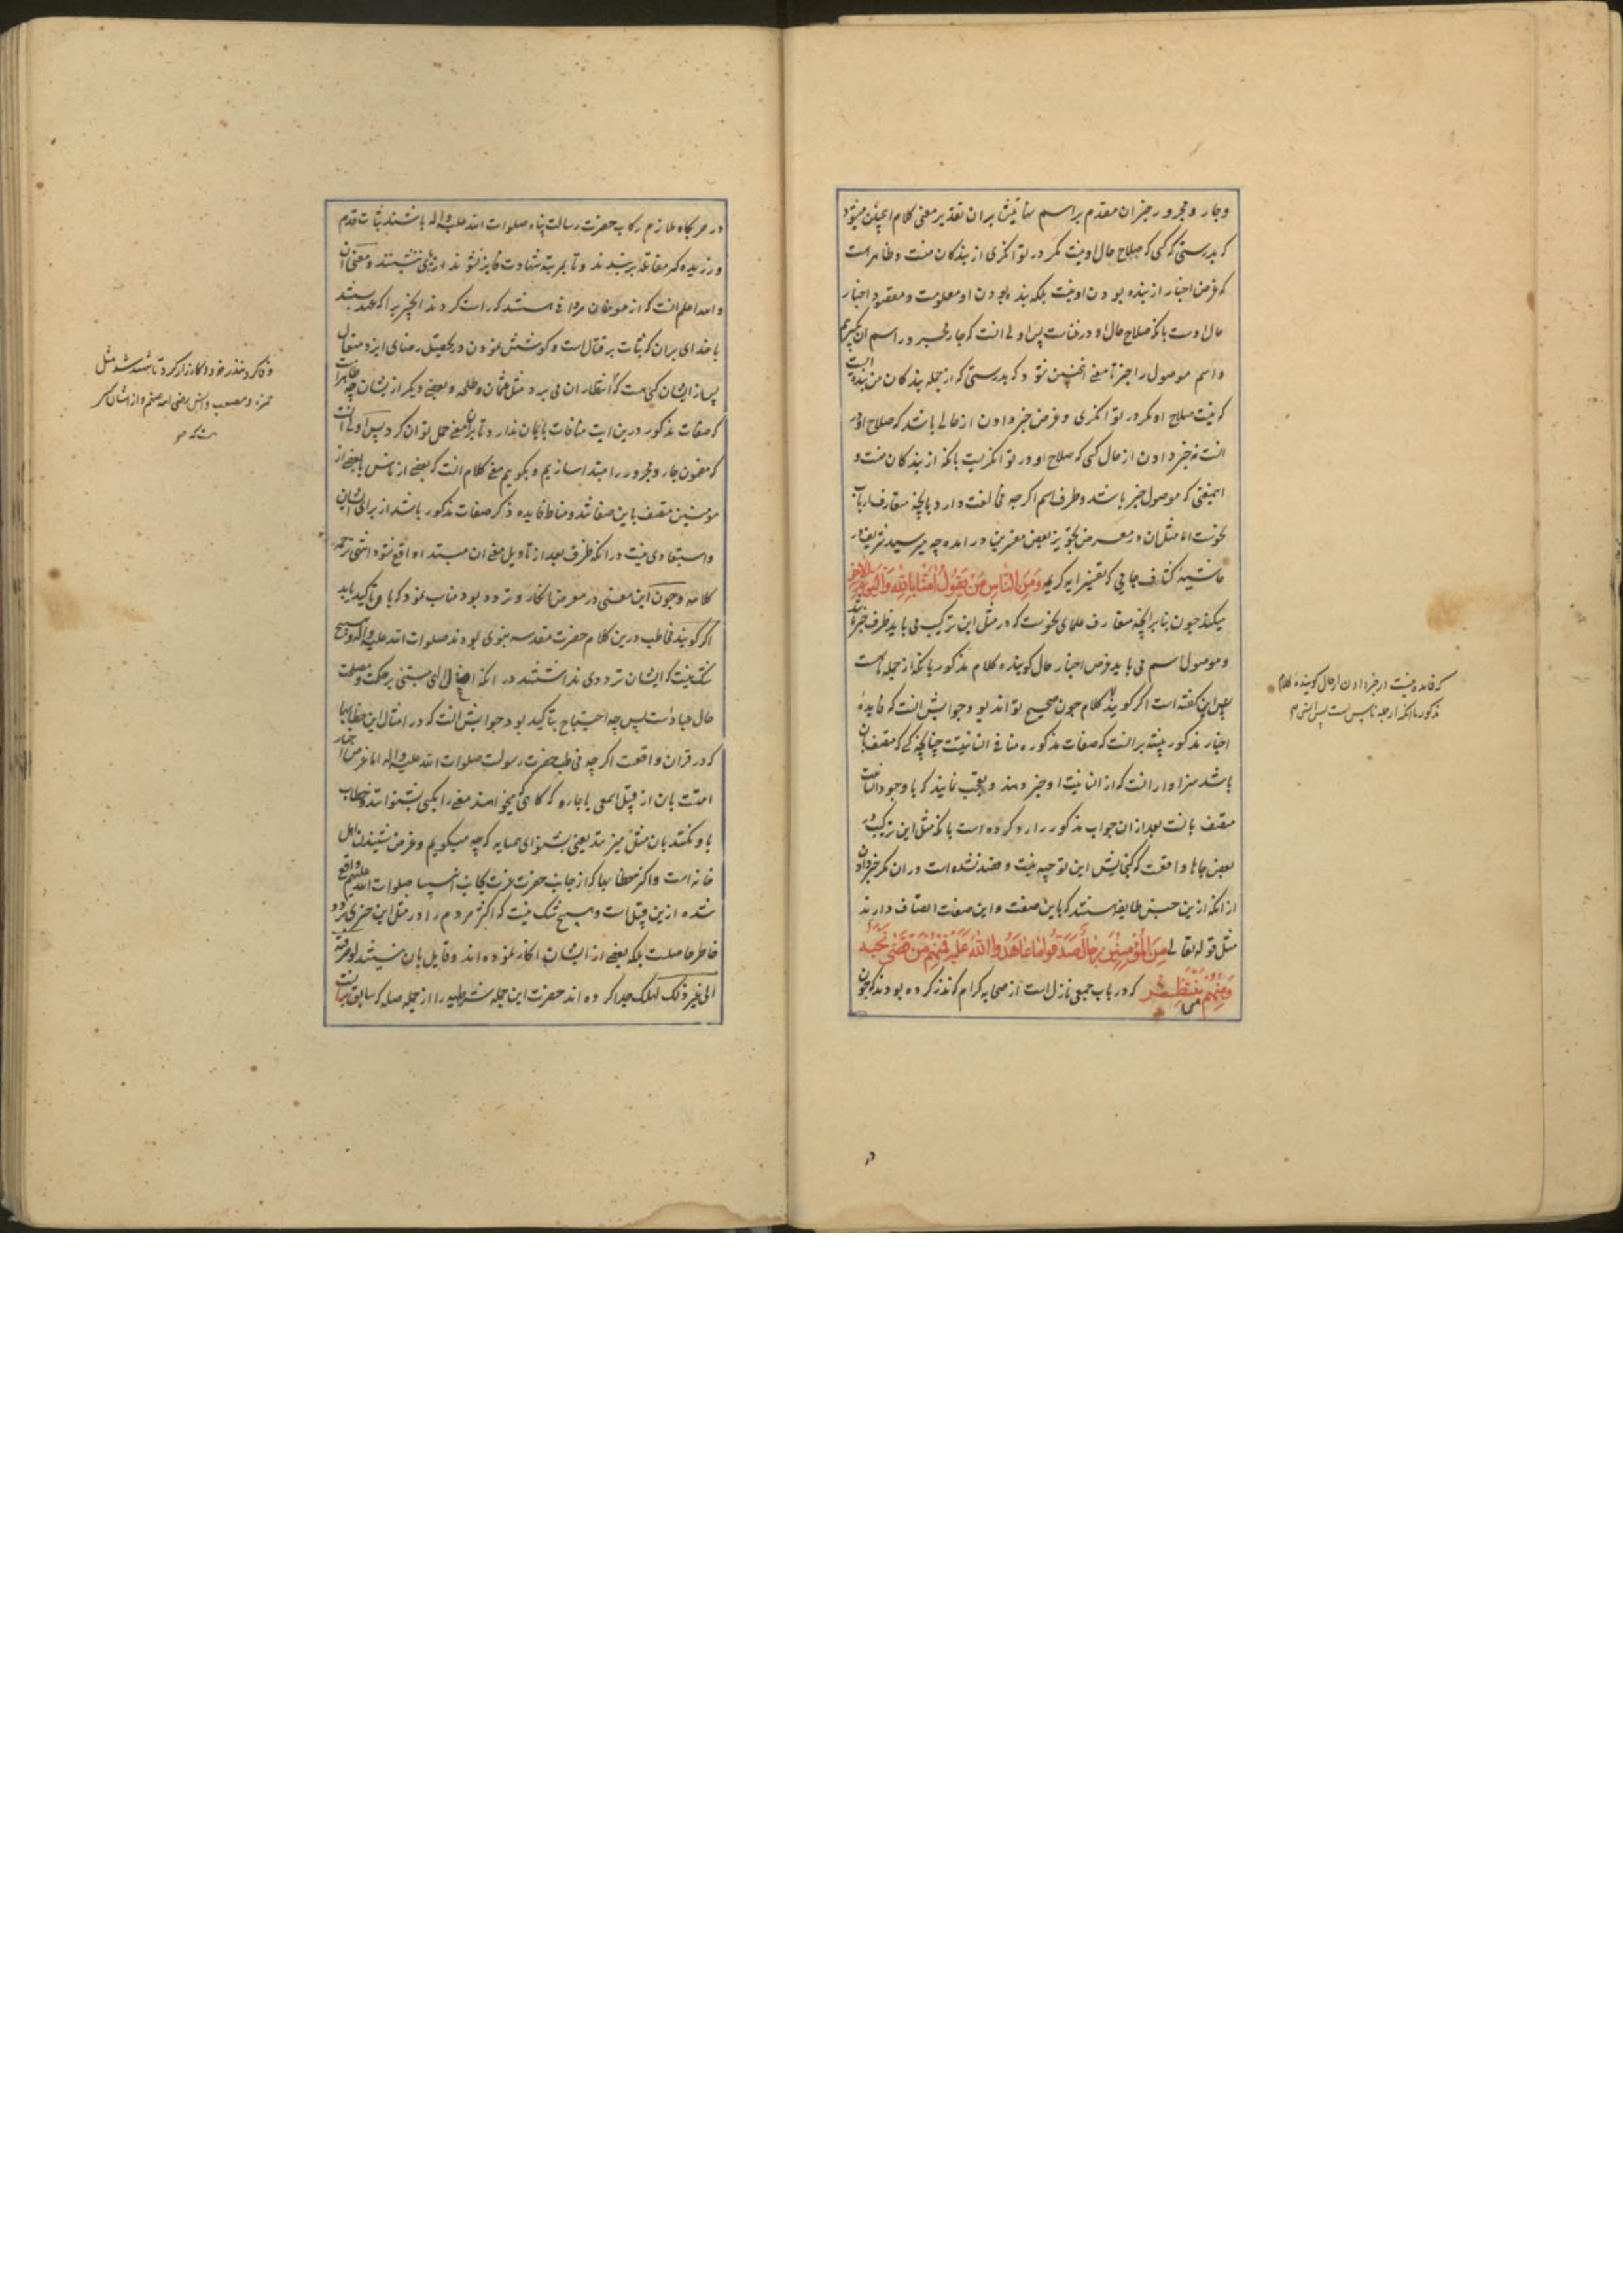 وجار ومجرور خبر ان مقدم بر اسم سابقش بران تقدیر معنی کلام اینچنین میشود
که بدرستی که کسی که صلاح حال او نیست مکر در توانکری از بندکان منست وظاهر است
که غرض اخبار از بنده بودن او نیست بلکه بنده بودن او معلومست ومقصود اخبار
حال اوست بانکه صلاح حال او در غناست پس اولی انست که جار مجرور را اسم ان کیریم
واسم موصول را خبر تا معنی اینچنین شود که بدرستی که از جمله بندکان من بنده ایست
که نیست صلاح او مکر در توانکری وغرض خبر دادن از حالی باشد که صلاح او در
انست نه خبر دادن از حال کسی که صلاح او در توانکریست بانکه از بندکان منست و
اینمعنی که موصول خبر باشد وظرف اسم اکرچه مخالفت دارد بانچه متعارف ارباب
نحوست اما مثل ان در معرض تجویز بعض مفسرین در امده چه میر سید شریف در
حاشیهٔ کشاف جایی که تفسیر ایه کریمه وَمِنَ النّاسِ مَن یَقُولُ اٰمَنّا بِاللهِ وَبِالیَومِ الاٰخِرِ
میکند چون بنابر انچه متعارف علمای نحوست که در مثل این ترکیب می باید ظرف خبر باشد
وموصول اسم می باید غرض اخبار حال کوینده کلام مذکور بانکه از جمله ناس است
پس این کفته است اکر کویند کلام چون صحیح تواند بود وجوابش انست که فایدهٔ
اخبار مذکور تنبیه برانست که صفات مذکوره منافی انسانیتست چنانچه کسی که متصف بان
باشد سزاوار انست که از انسانیت او خبر دهند وتعجب نمایند که با وجود انسانیت
متصف بانست بعد ازان جواب مذکور را رد کرده است بانکه مثل این ترکیب در
بعض جاها واقعست که کنجایش این توجیه نیست وقصد نشده است دران مکر خبر دادن
از انکه ازین جنس طایفه هستند که باین صفت واین صفت اتصاف دارند
مثل قوله تعالی مِنَ المُؤمِنینَ رِجالٌ صَدَقُوا ما عاهَدُوا اللهَ عَلَیهِ فَمِنهُم مَن قَضی نَحبَه
وَمِنهُم مَن یَنتَظِر که در باب جمعی نازل است از صحابه کرام که نذر کرده بودند که چون
که فایده نیست در خبر دادن از حال کوینده کلام
مذکور بانکه از جمله ناس است پس این
در
در حربکاه ملازم رکاب حضرت رسالت پناه صلوات الله علیه واله باشند ثبات قدم
ورزیده کرم مقاتله برسند وتا بمرتبه شهادت فایز نشوند از پای ننشینند ومعنی ان
والله اعلم انست که از مومنان مردانی هستند که راست کردند انچیزیرا که عهد بستند
با خدای بران که ثبات بر قتال است وکوشش نمودن در تحصیل رضای ایزد متعال
پس از ایشان کسی هست که انتظار ان می برد مثل عثمان وطلحه وبعضی دیکر از یشان چه ظاهرا
که صفات مذکور درین ایت منافات بایمان ندارد تا بران معنی حمل توان کرد پس اولی انست
که مضمون جار ومجرور را مبتدا سازیم وبکوییم معنی کلام انست که بعضی از ناس یا بعضی از
مومنین متصف باین صفاتند ومناط فایده ذکر صفات مذکور باشد از برای ایشان
واستبعادی نیست در انکه ظرف بعد از تاویل معنی ان مبتدا واقع شود انتهی ترجمه
کلامه وچون این معنی در معرض انکار وتردد بود مناسب نمود که با تاکید باید
اکر کویند مخاطب درین کلام حضرت مقدسه نبوی بودند صلوات الله علیه واله وهیچ
شک نیست که ایشان ترددی نداشتند در انکه افعال الهی مبتنی بر حکمت ومصلحت
حال عباد است پس چه احتیاج بتاکید بود جوابش انست که در امثال این خطابها
که در قران واقعست اکرچه مخاطب حضرت رسولست صلوات الله علیه واله اما غرض اخبار
امتست بان از قبیل اسمعی یا جاره که کاهی که میخواهند معنی را بکسی بشنوانند وخطاب
با او نکنند بان مثل میزنند یعنی بشنو ای همسایه که چه میکویم وغرض شنیدن اهل
خانه است واکثر خطابها که از جانب حضرت عزت بجانب انبیا صلوات الله علیهم واقع
شده ازین قبیل است وهیچ شک نیست که اکثر مردم را در مثل این چیزی تردد
خاطر حاصلست بلکه بعضی از ایشان انکار نموده اند وقایل بان نیستند
الی غیر ذلک لهلک جدا کرده اند حضرت این جمله شرطیه را از جمله صله که سابق بیانست
وفا کرد بنذر خود وکارزار کرد تا شهید شد مثل
حمزه ومصعب وانس رضی الله عنهم واز ایشان کس